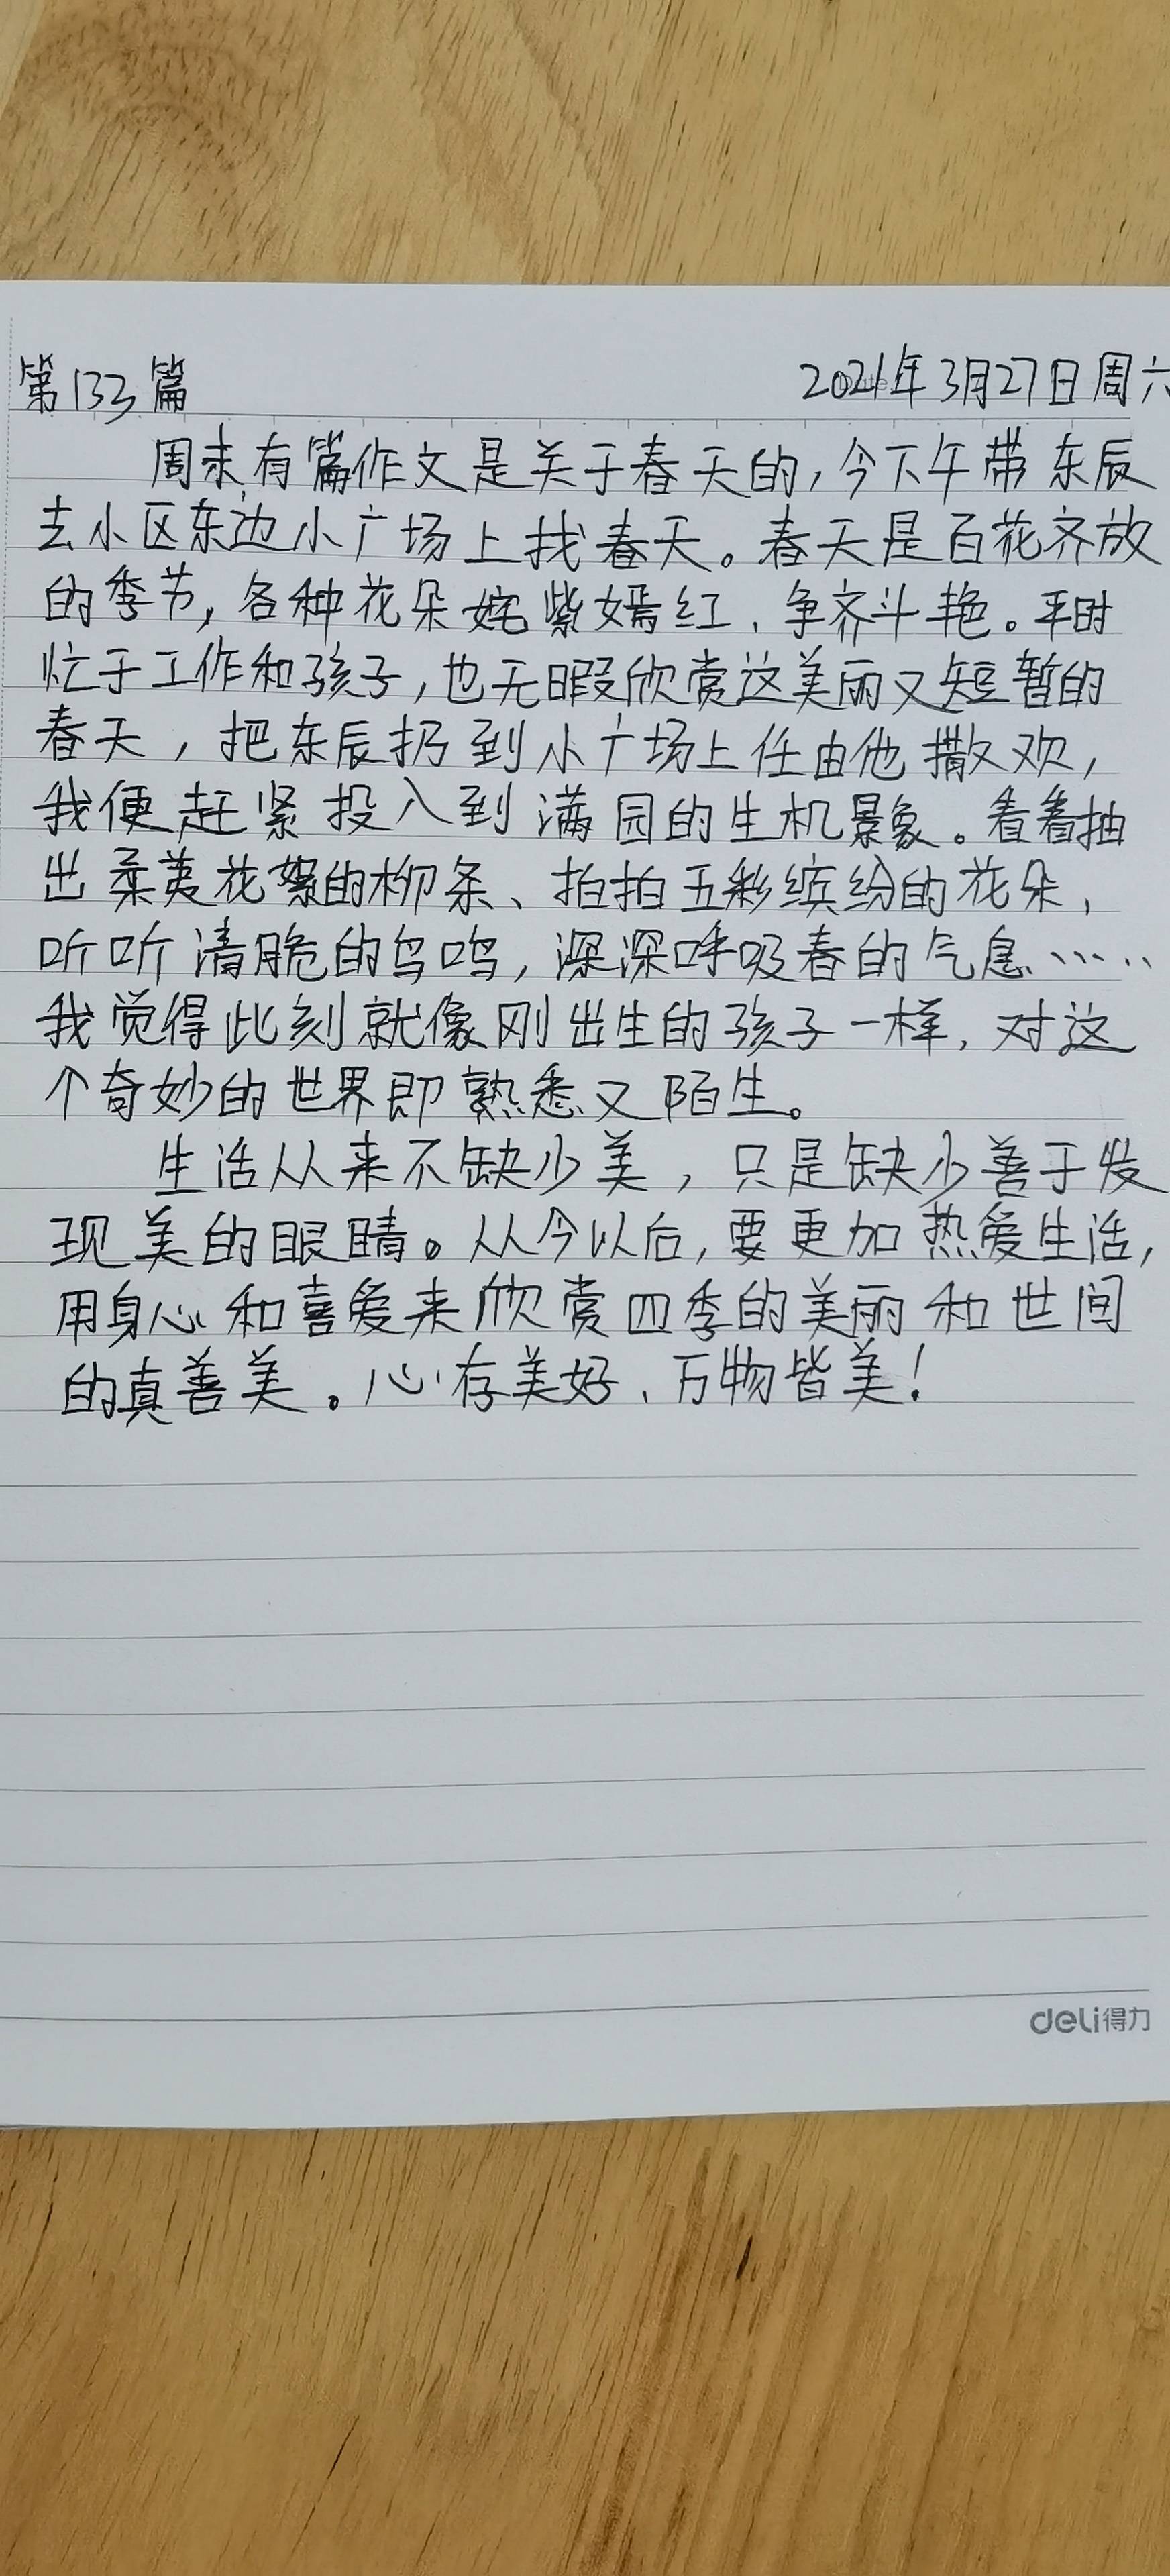 第133篇 2021年3月27日周六
周末有篇作文是关于春天的,今下午带东辰
去小区东边小广场上找春天。春天是百花齐放
的季节,各种花朵姹紫嫣红、争齐斗艳。平时
忙于工作和孩子,也无暇欣赏这美丽又短暂的
春天,把东辰扔到小广场上任由他撒欢,
我便赶紧投入到满园的生机景象。看看抽
出柔荑花絮的柳条、拍拍五彩缤纷的花朵,
听听清脆的鸟鸣,深深呼吸春的气息……
我觉得此刻就像刚出生的孩子一样,对这
个奇妙的世界即熟悉又陌生。
生活从来不缺少美,只是缺少善于发
现美的眼睛。从今以后,要更加热爱生活,
用身心和喜爱来欣赏四季的美丽和世间
的真善美。心存美好、万物皆美!
deli得力